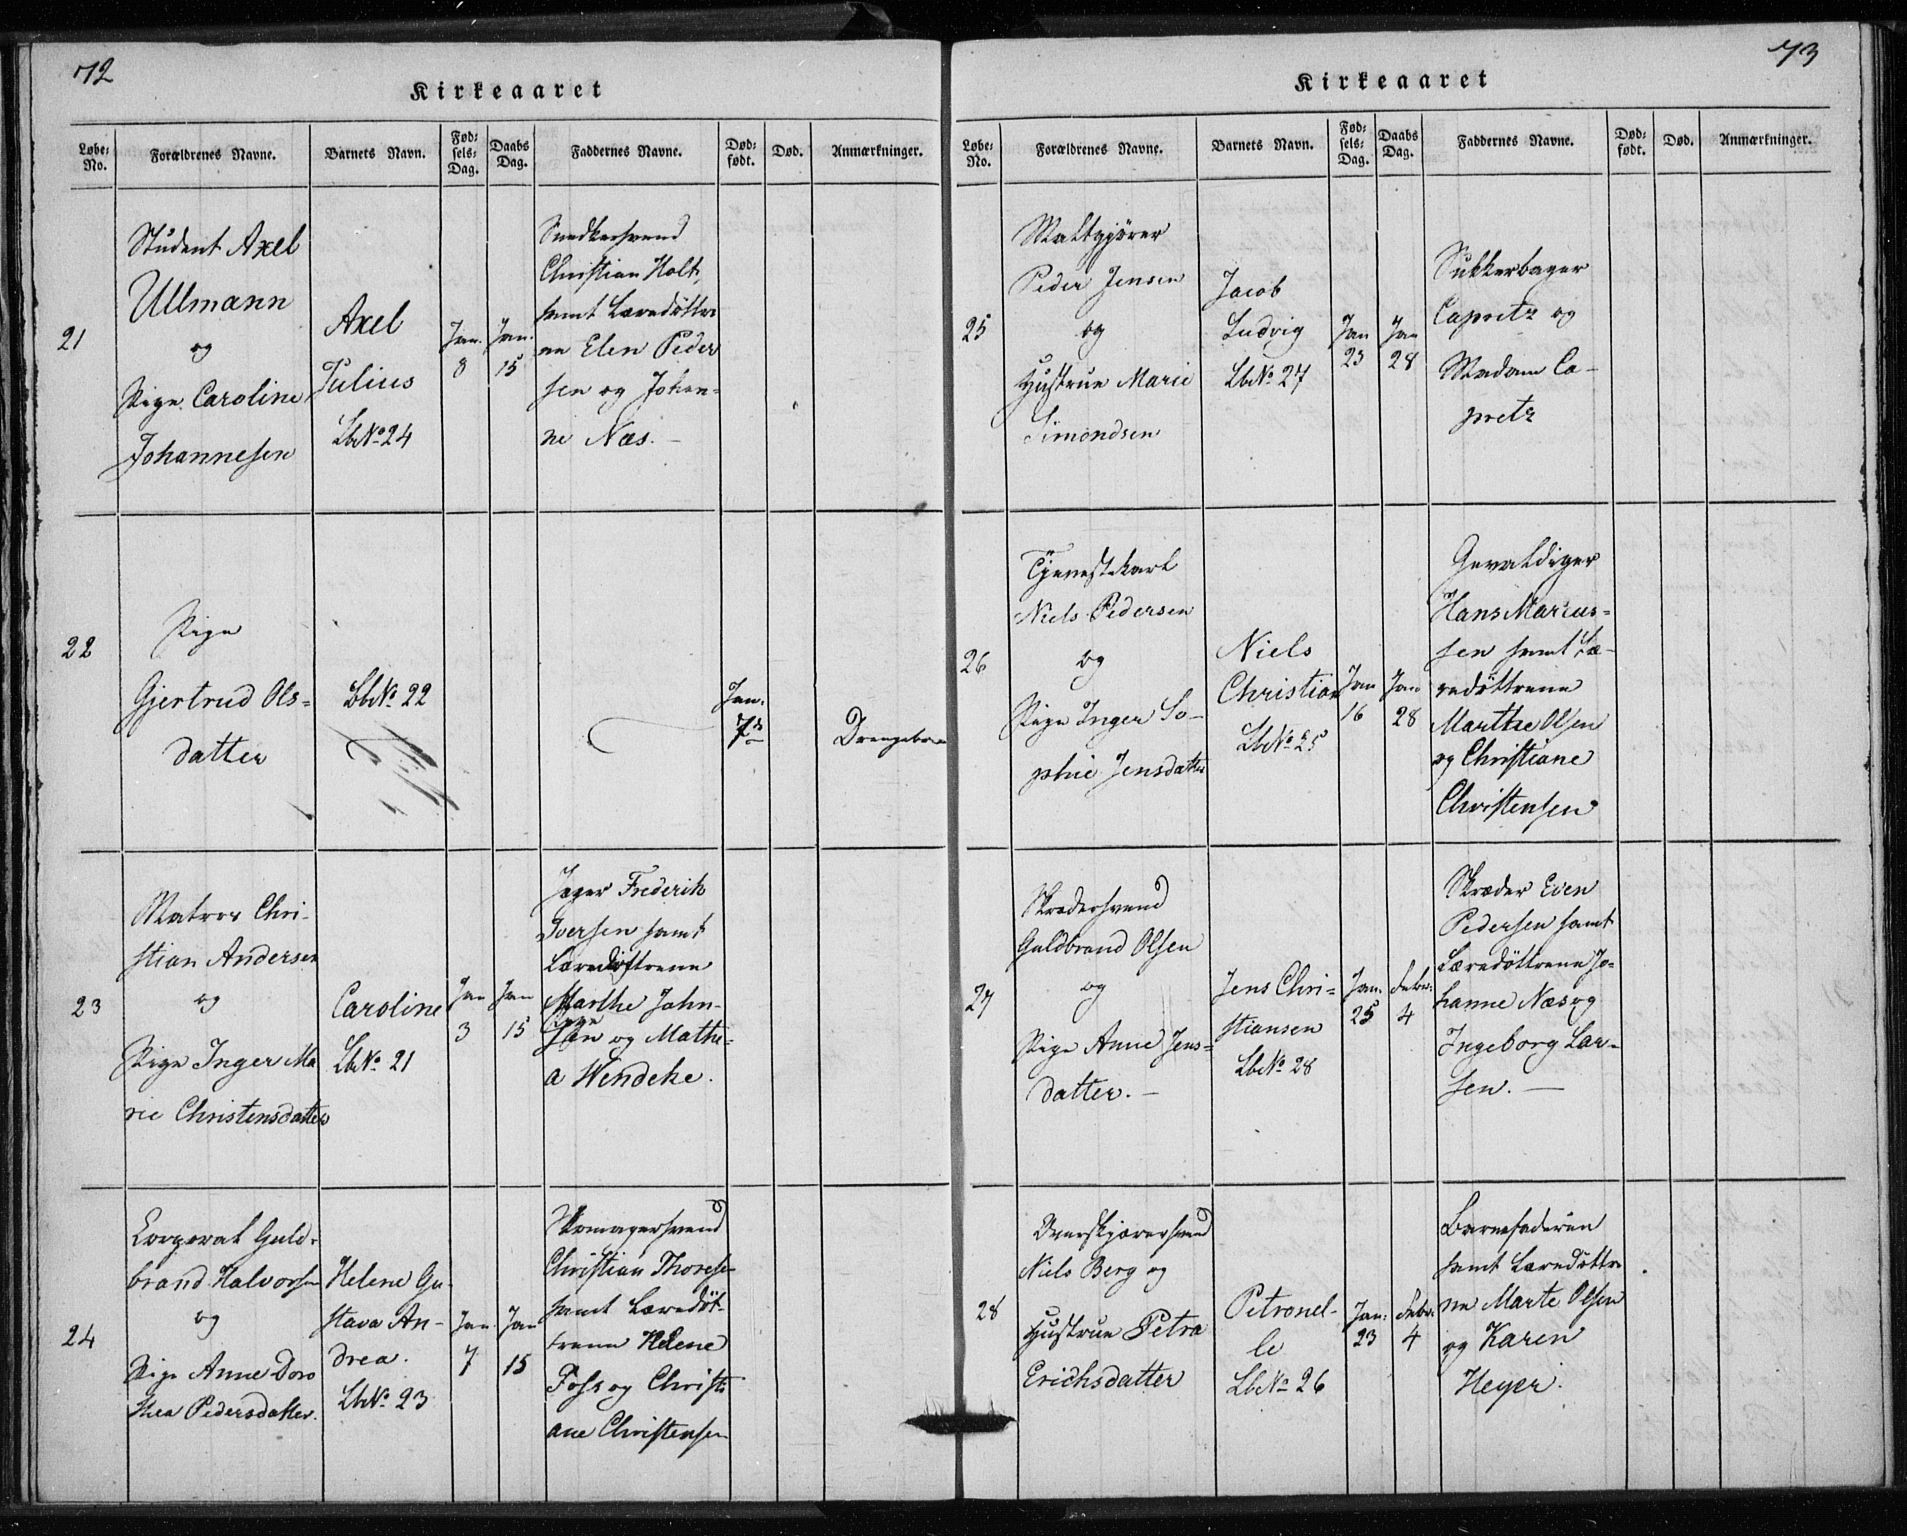 72
Kirkeaaret
Løbe-No.
Forældrenes Navne.
Barnets Navn.
Fød-sels-Dag.
Daabs Dag.
Faddernes Navne.
Død-født.
Død.
Anmærkninger.
21
Student Axel
Ullmann
og
Pige Caroline
Johannesen
Axel
Julius
Lb№ 24
Jan.
8
Jan.
15
Snedkersvend
Christian Holt,
samt Læredöttre
ne Elen Peder
sen og Johan-
ne Næs. —
22
Pige
Gjertrud Ols-
datter
Lb№ 22
Jan.
7de
Drengebarn
23
Matros Chri-
stian Andersen
og
Pige Inger Ma
rie Christensdatter
Caroline
Lb№ 21
Jan
3
Jan
15
Jæger Frederik
Iversen samt
Læredöttrene
Marthe John-
sen og Mathe-
a Wendeke.
24
Corporal Guld-
brand Halvorsen
og
Pige Anne Doro
thea Pedersdatter.
Helene Gu-
stava An-
drea.
Lb№ 23
Jan.
7
Jan
15
Skomagersvend
Christian Thorese-
samt Læredöt-
trene Helene
Foss og Christi
ane Christensen
73
Kirkeaaret
Løbe-No.
Forældrenes Navne.
Barnets Navn.
Fød-sels-Dag.
Daabs Dag.
Faddernes Navne.
Død-født.
Død.
Anmærkninger.
25
Maltgjörer
Peder Jensen
og
Hustrue Marie
Simondsen
Jacob
Ludvig
Lb№ 27
Jan
23
Jan
28
Sukkerbager
Capretz og
Madam Ca-
pretz
26
Tjenestekarl
Niels Pedersen
og
Pige Inger So-
phie Jensdatter
Niels
Christian
Lb№ 25
Jan
16
Jan
28
Gevaldiger
Hans Marcus-
sen samt Læ-
redöttrene
Marthe Olsen
og Christiane
Christensen
27
Skrædersvend
Guldbrand Olsen
og
Pige Anne Jens-
datter. —
Jens Chri-
stiansen
Lb№ 28
Jan.
25
Febr:
4
Skræder Even
Pedersen samt
Læredöttrene Jo-
hanne Næs og
Ingeborg Lar-
sen. —
28
Overskjærersvend
Niels Berg og
Hustrue Petra
Erichsdatter
Petronel-
le
Lb№ 26
Jan:
23
Febr:
4
Barnefaderen
samt Læredöttre
ne Marte Olsen
og Karen
Heyer.